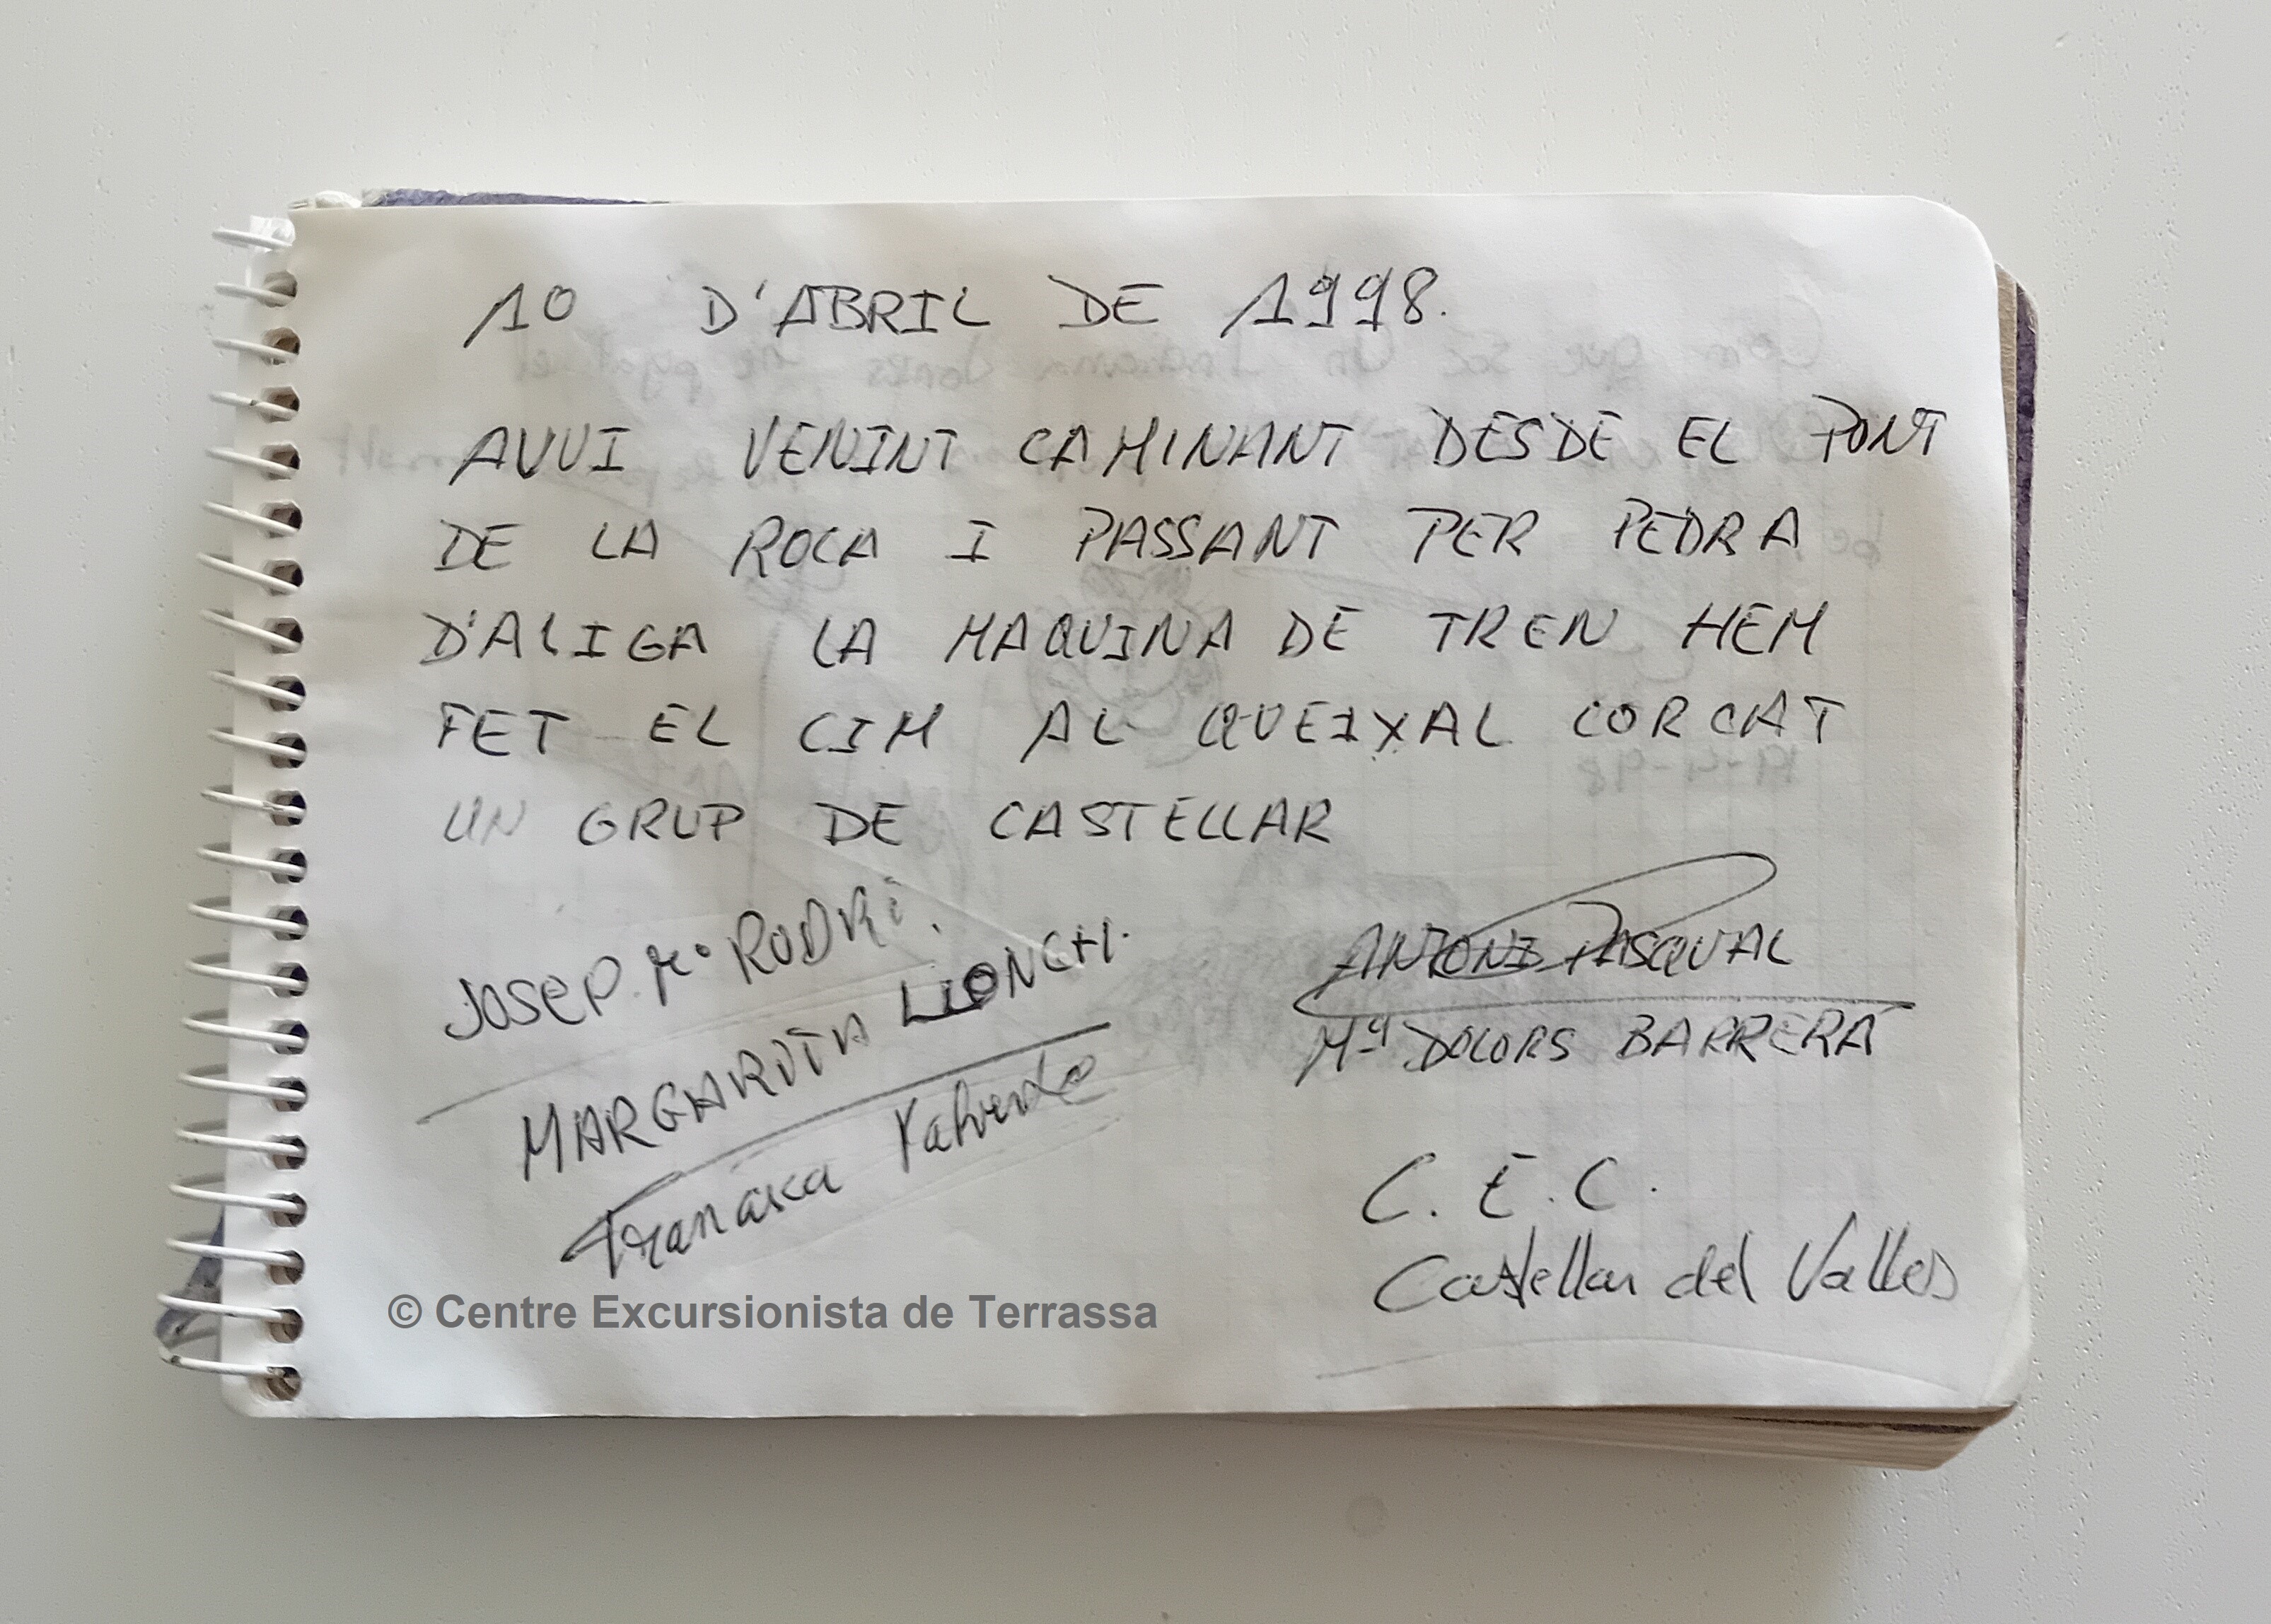 10 D'ABRIL DE 1998.
AVUI VENINT CAMINANT DESDE EL PONT
DE LA ROCA I PASSANT PER PEDRA
D'ALIGA LA MAQUINA DE TREN HEM
FET EL CIM AL QUEIXAL CORCAT
UN GRUP DE CASTELLAR
JOSEP Mº RODRI.
MARGARITA LLONCH.
Valverde
ANTONI PASQUAL
Mª DOLORS BARRERA
C. E. C.
Castellar del Valles
© Centre Excursionista de Terrassa